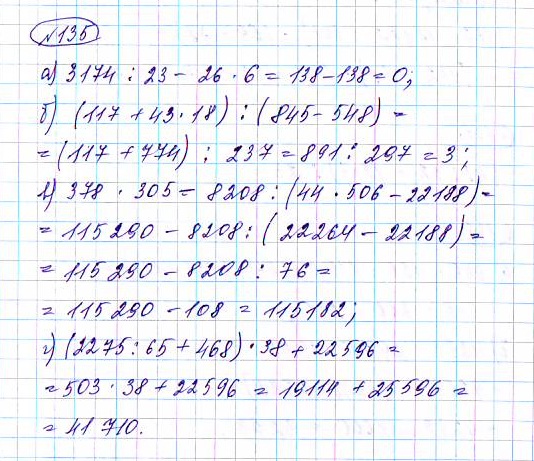 №135
а) 3174 : 23 - 26 · 6 = 138 - 138 = 0;
б) (117 + 43 · 18) : (845 - 548) =
= (117 + 774) : 237 = 891 : 297 = 3;
в) 378 · 305 - 8208 : (44 · 506 - 22188) =
= 115290 - 8208 : (22264 - 22188) =
= 115290 - 8208 : 76 =
= 115290 - 108 = 115182;
г) (2275 : 65 + 468) · 38 + 22596 =
= 503 · 38 + 22596 = 19114 + 25596 =
= 41 710.